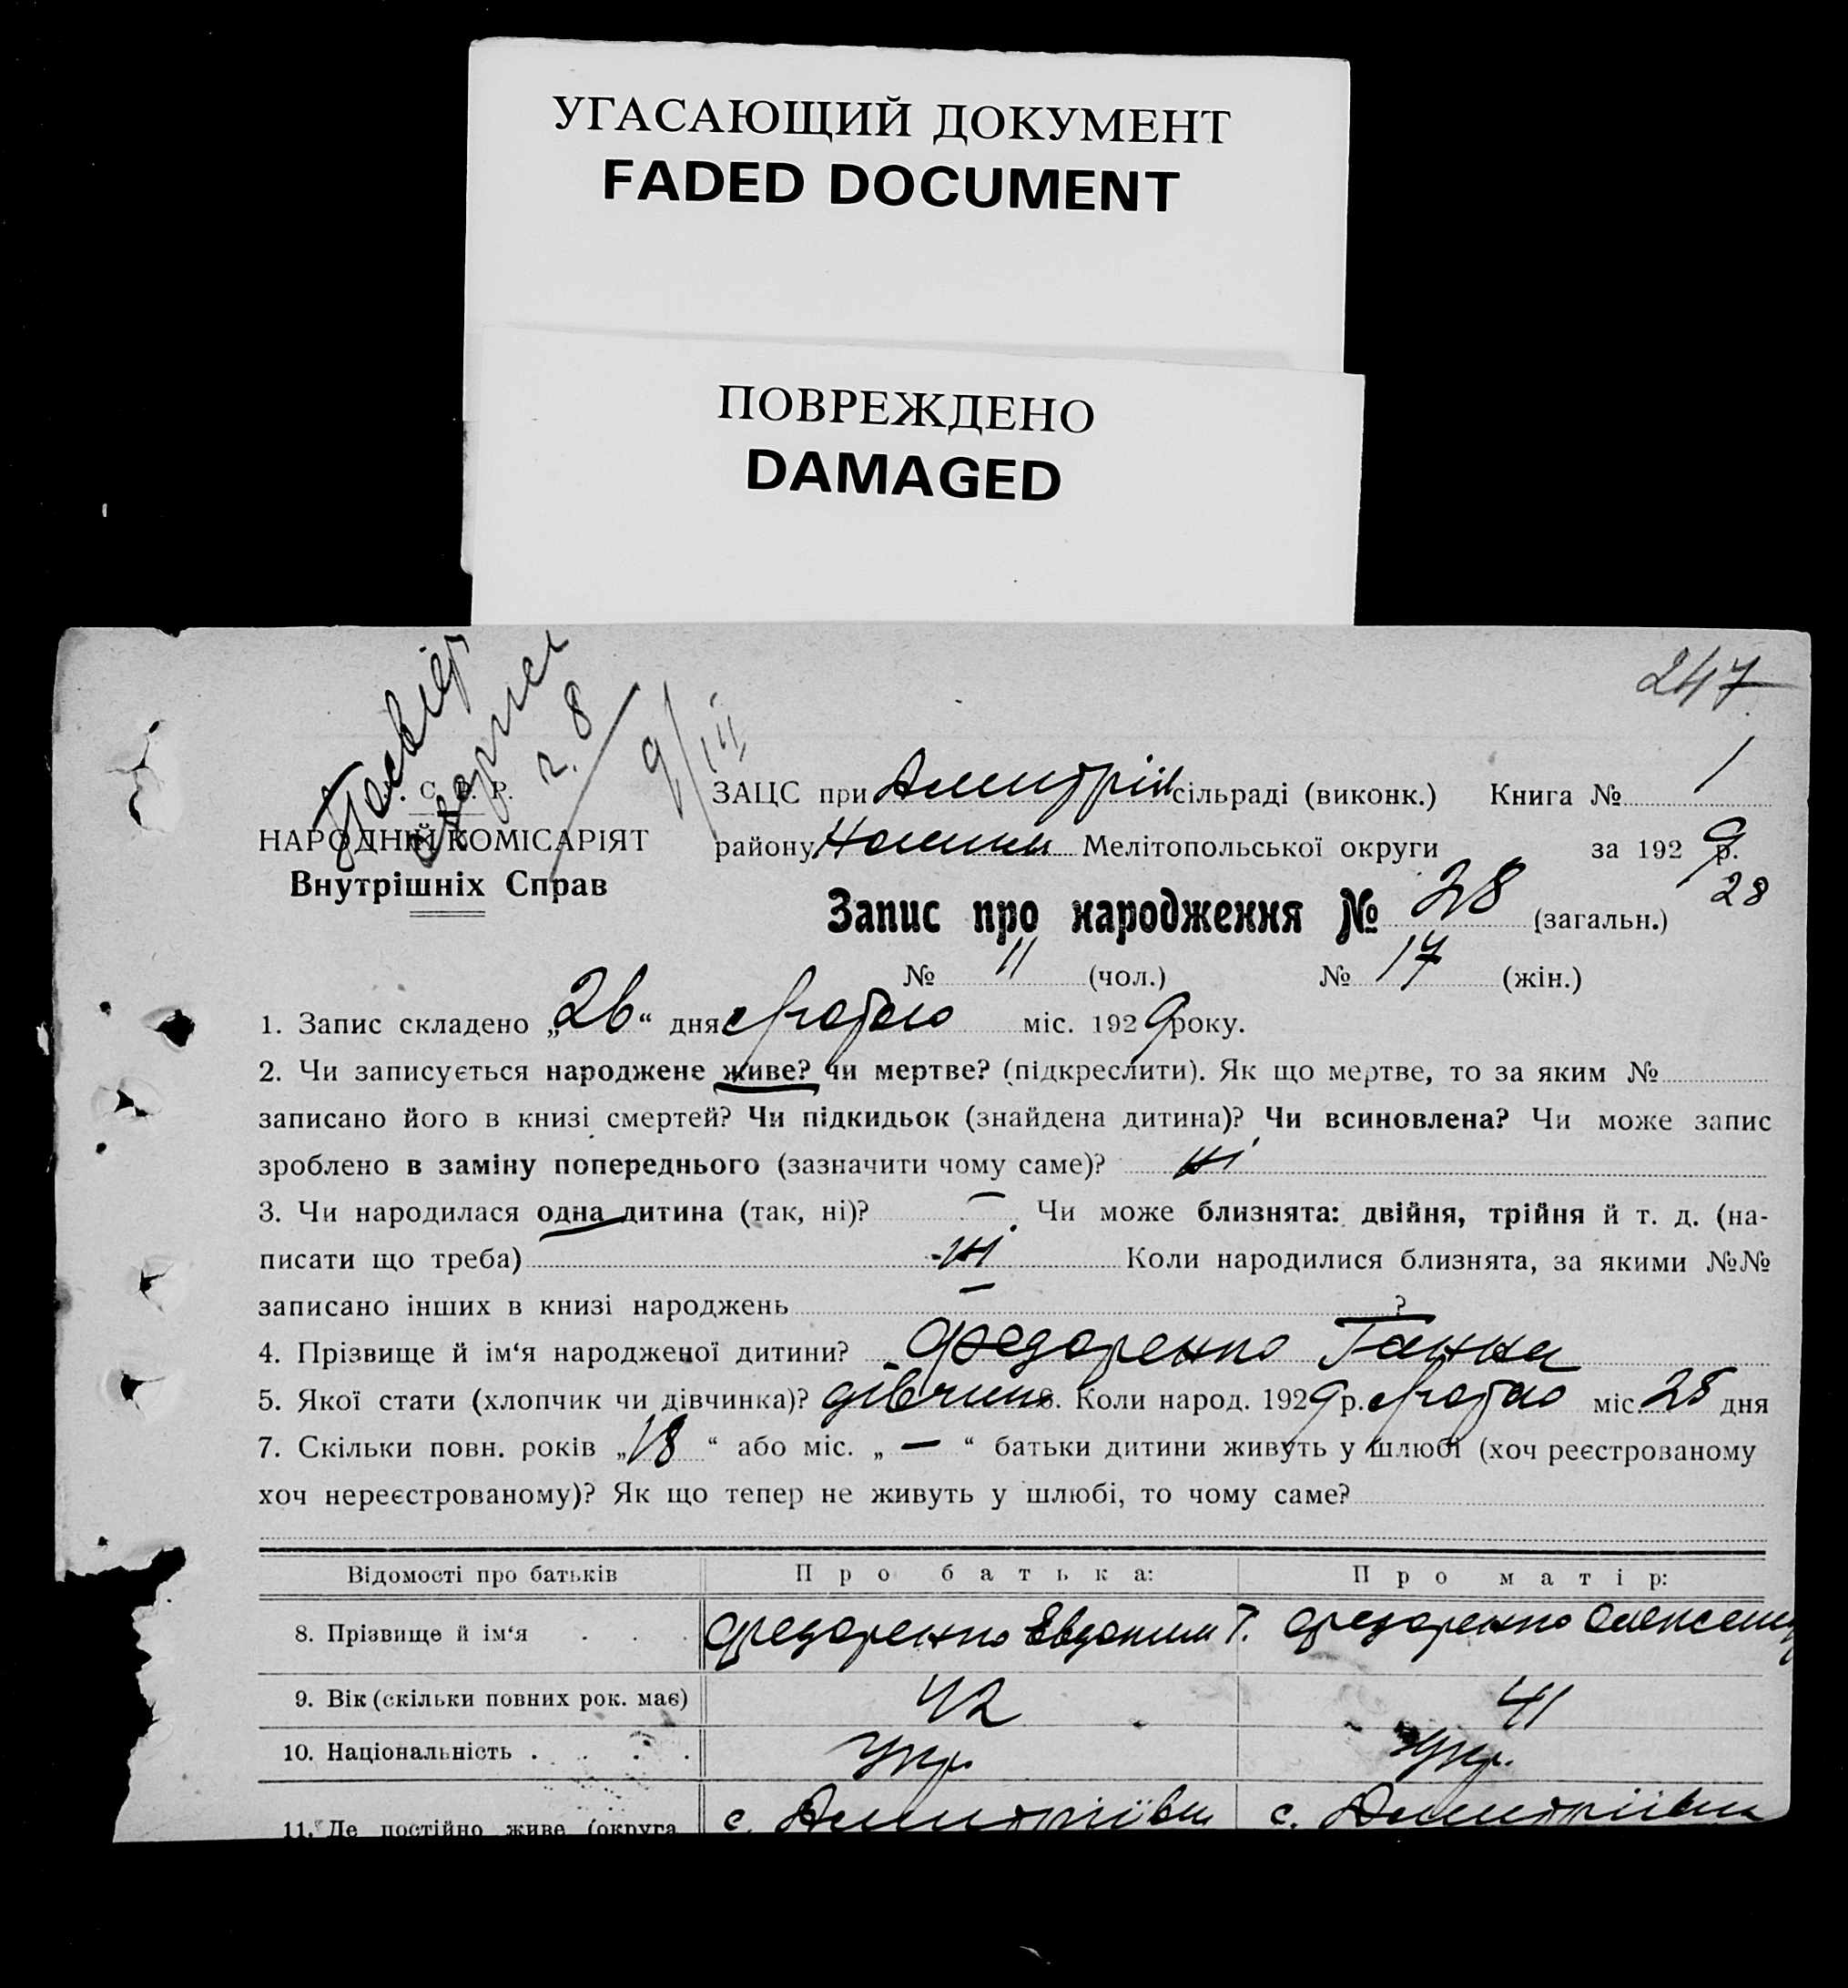 УГАСАЮЩИЙ ДОКУМЕНТ
FADED DOCUMENT
ПОВРЕЖДЕНО
DAMAGED
247
9/III
С. Р. Р.
НАРОДНІЙ КОМІСАРІЯТ
Внутрішніх Справ
ЗАЦС при Дмитрів сільраді (виконк.) Книга № 1
району Мелітопольської округи за 1929 р.
28
Запис про народження № 28 (загальн.)
№ 11 (чол.) № 17 (жін.)
1. Запис складено „26“ дня лютого міс. 1929 року.
2. Чи записується народжене живе? чи мертве? (підкреслити). Як що мертве, то за яким №
записано його в книзі смертей? Чи підкидьок (знайдена дитина)? Чи всиновлена? Чи може запис
зроблено в заміну попереднього (зазначити чому саме)? ні
3. Чи народилася одна дитина (так, ні)? — Чи може близнята: двійня, трійня й т. д. (на-
писати що треба) ні Коли народилися близнята, за якими №№
записано інших в книзі народжень — ?
4. Прізвище й ім‘я народженої дитини? Федоренко Ганна
5. Якої стати (хлопчик чи дівчинка)? дівчина 6. Коли народ. 1929 р. лютого міс. 25 дня
7. Скільки повн. років „18“ або міс. „—“ батьки дитини живуть у шлюбі (хоч реєстрованому
хоч нереєстрованому)? Як що тепер не живуть у шлюбі, то чому саме?
Відомості про батьків Про батька: Про матір:
8. Прізвище й ім‘я . . . Федоренко Евдоким Т. Федоренко Олександ
9. Вік (скільки повних рок. має) 42 41
10. Національність . . . . Укр. Укр.
11. Де постійно живе (округа с. Дмитріївка с. Дмитріївка